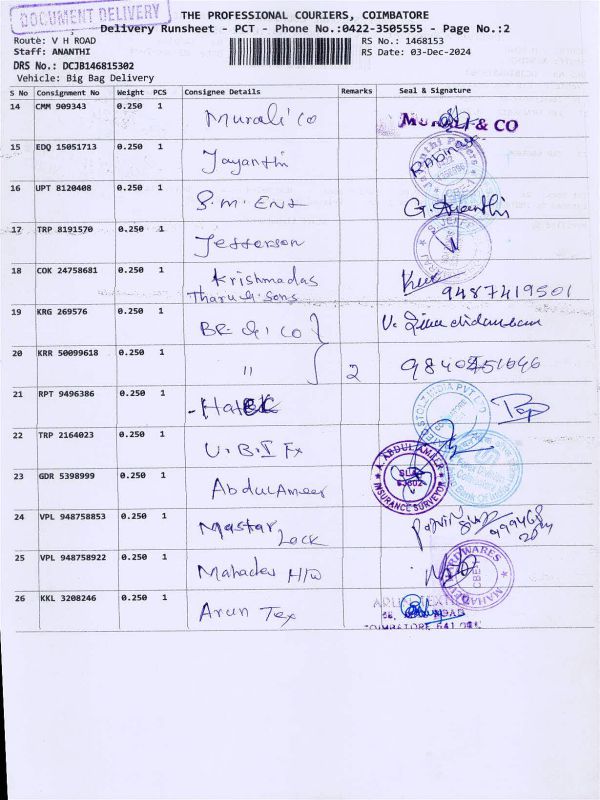 DOCUMENT DELIVERY
THE PROFESSIONAL COURIERS, COIMBATORE
Delivery Runsheet - PCT - Phone No.:0422-3505555 - Page No.:2
Route: V H ROAD RS No.: 1468153
Staff: ANANTHI RS Date: 03-Dec-2024
DRS No.: DCJB146815302
Vehicle: Big Bag Delivery
S No Consignment No Weight PCS Consignee Details Remarks Seal & Signature
14 CMM 909343 0.250 1 Murali Co & CO
15 EDQ 15051713 0.250 1 Jayanthi
16 UPT 8120408 0.250 1 S.M. Ent G. Ananthi
17 TRP 8191570 0.250 1 Jefferson
18 COK 24758681 0.250 1 Krishnadas
9487419501
19 KRG 269576 0.250 1
20 KRR 50099618 0.250 1 " 2
21 RPT 9496386 0.250 1
22 TRP 2164023 0.250 1 U.B.I Fx
23 GDR 5398999 0.250 1 Abdul Ameer ABDUL AMEER INSURANCE SURVEYOR
24 VPL 948758853 0.250 1 Mastar Lock
25 VPL 948758922 0.250 1 Mahadev H/W
26 KKL 3208246 0.250 1 Arun Tex